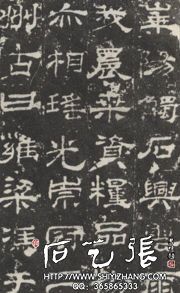 華陽觸石興雲
我農桑資糧品
亦相瑤光崇冠
州古曰雍梁馮于
石艺張
HTTP://WWW.SHIYIZHANG.COM
QQ: 365865333